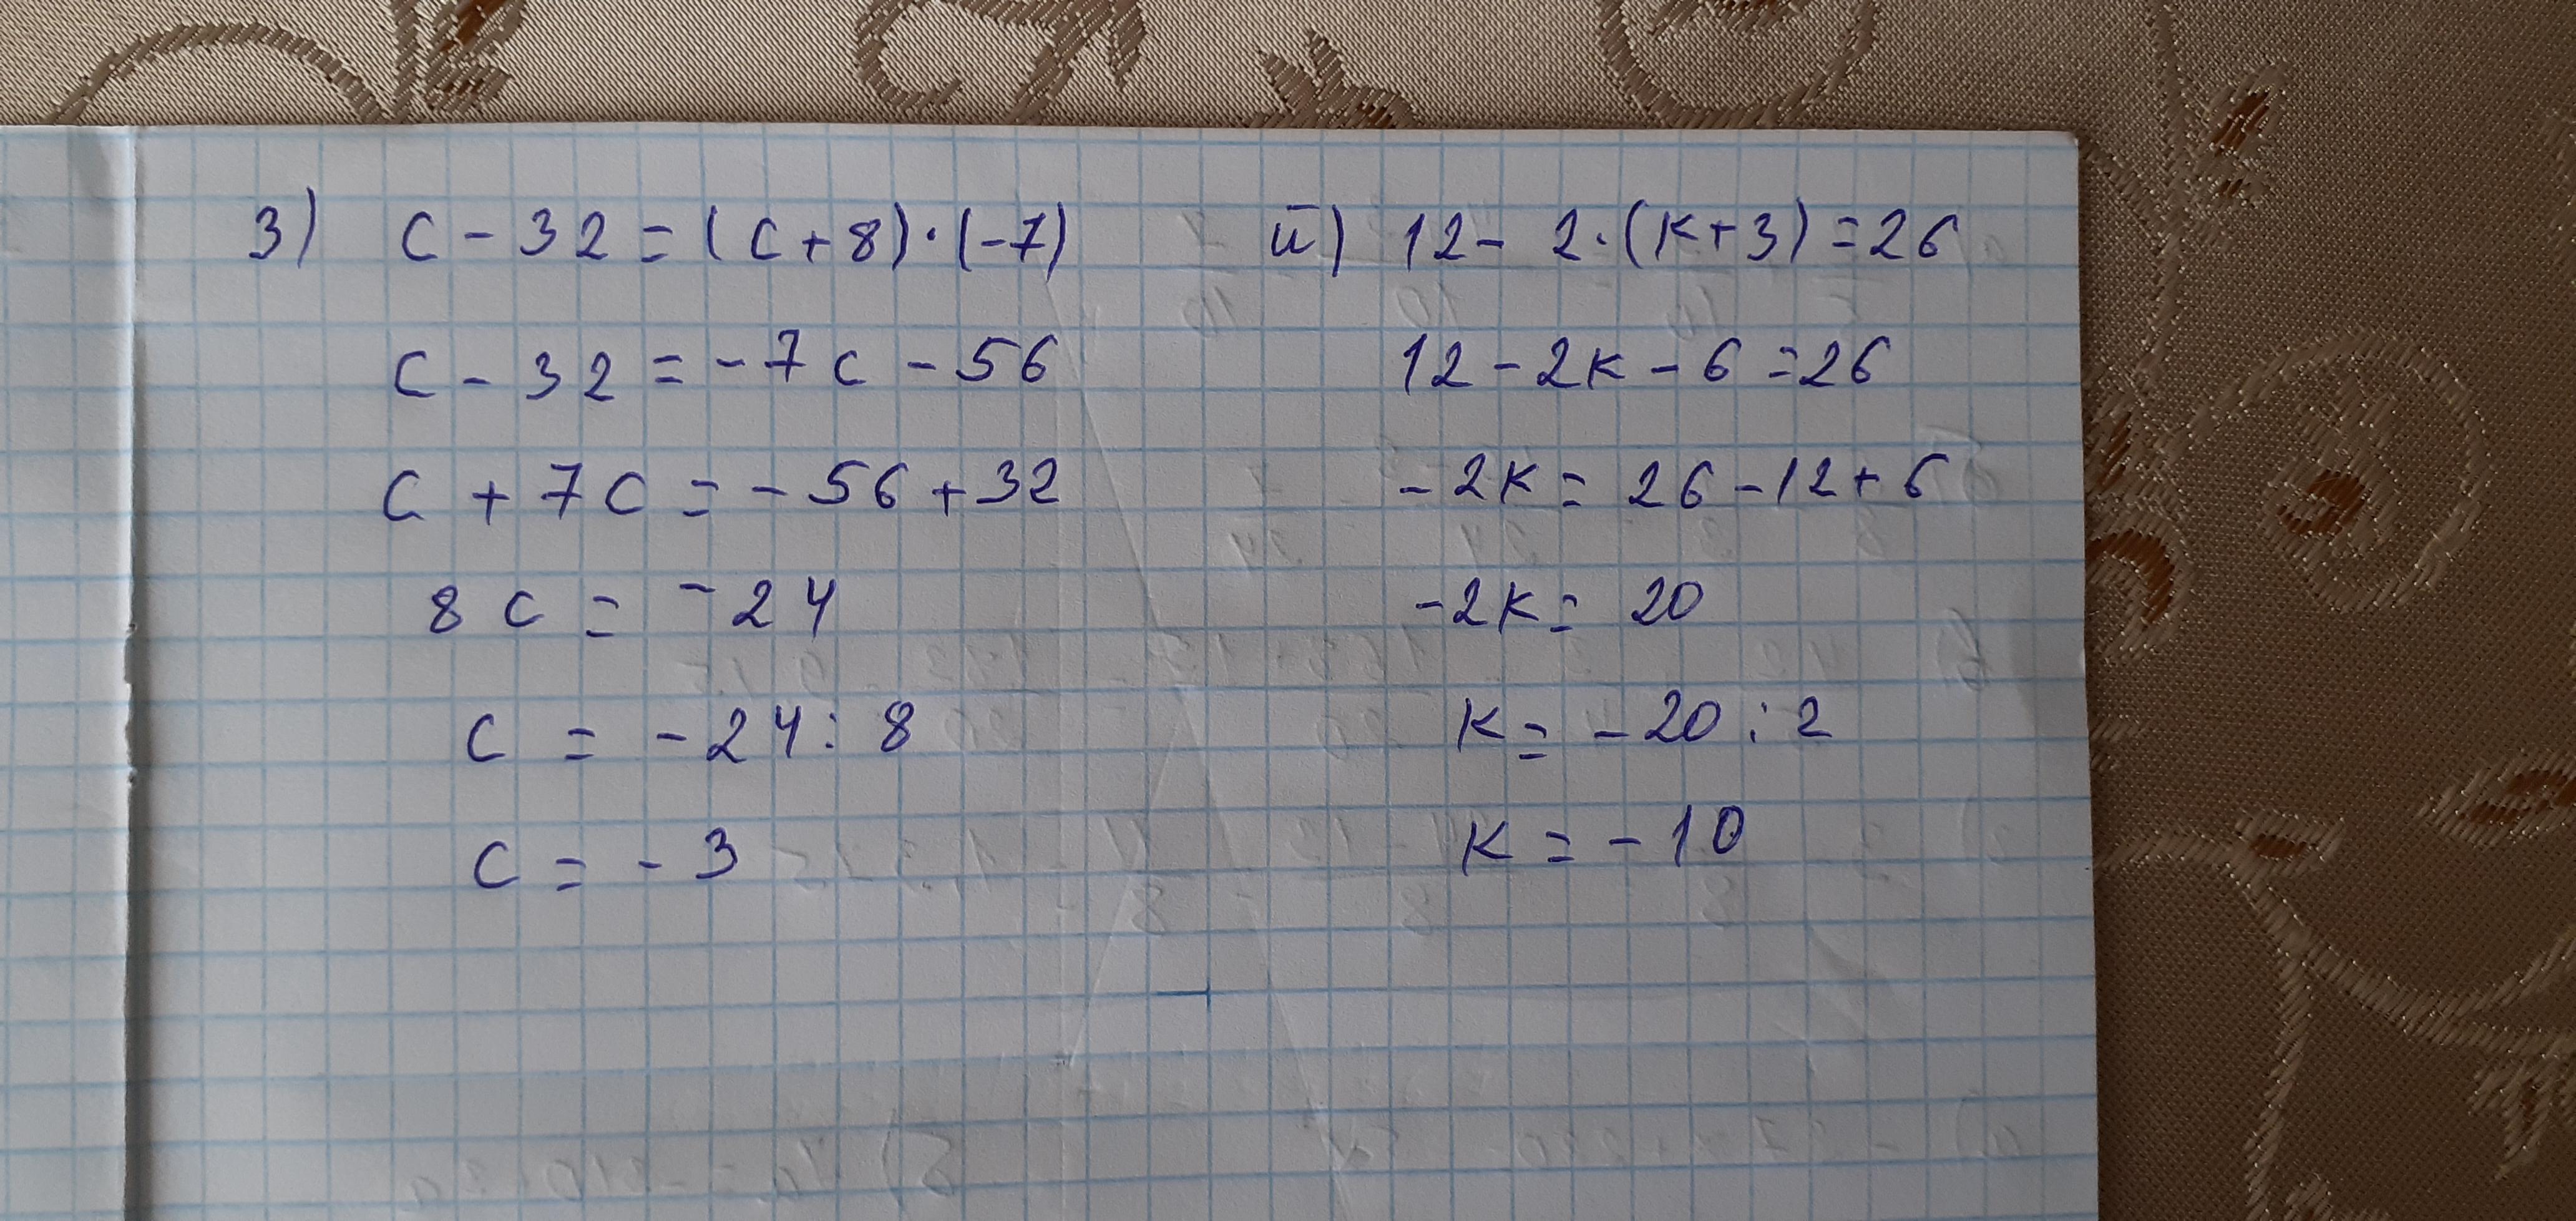 з) c - 32 = (c + 8) · (-7)
c - 32 = -7c - 56
c + 7c = -56 + 32
8c = -24
c = -24 : 8
c = -3
й) 12 - 2 · (к + 3) = 26
12 - 2к - 6 = 26
-2к = 26 - 12 + 6
-2к = 20
к = -20 : 2
к = -10